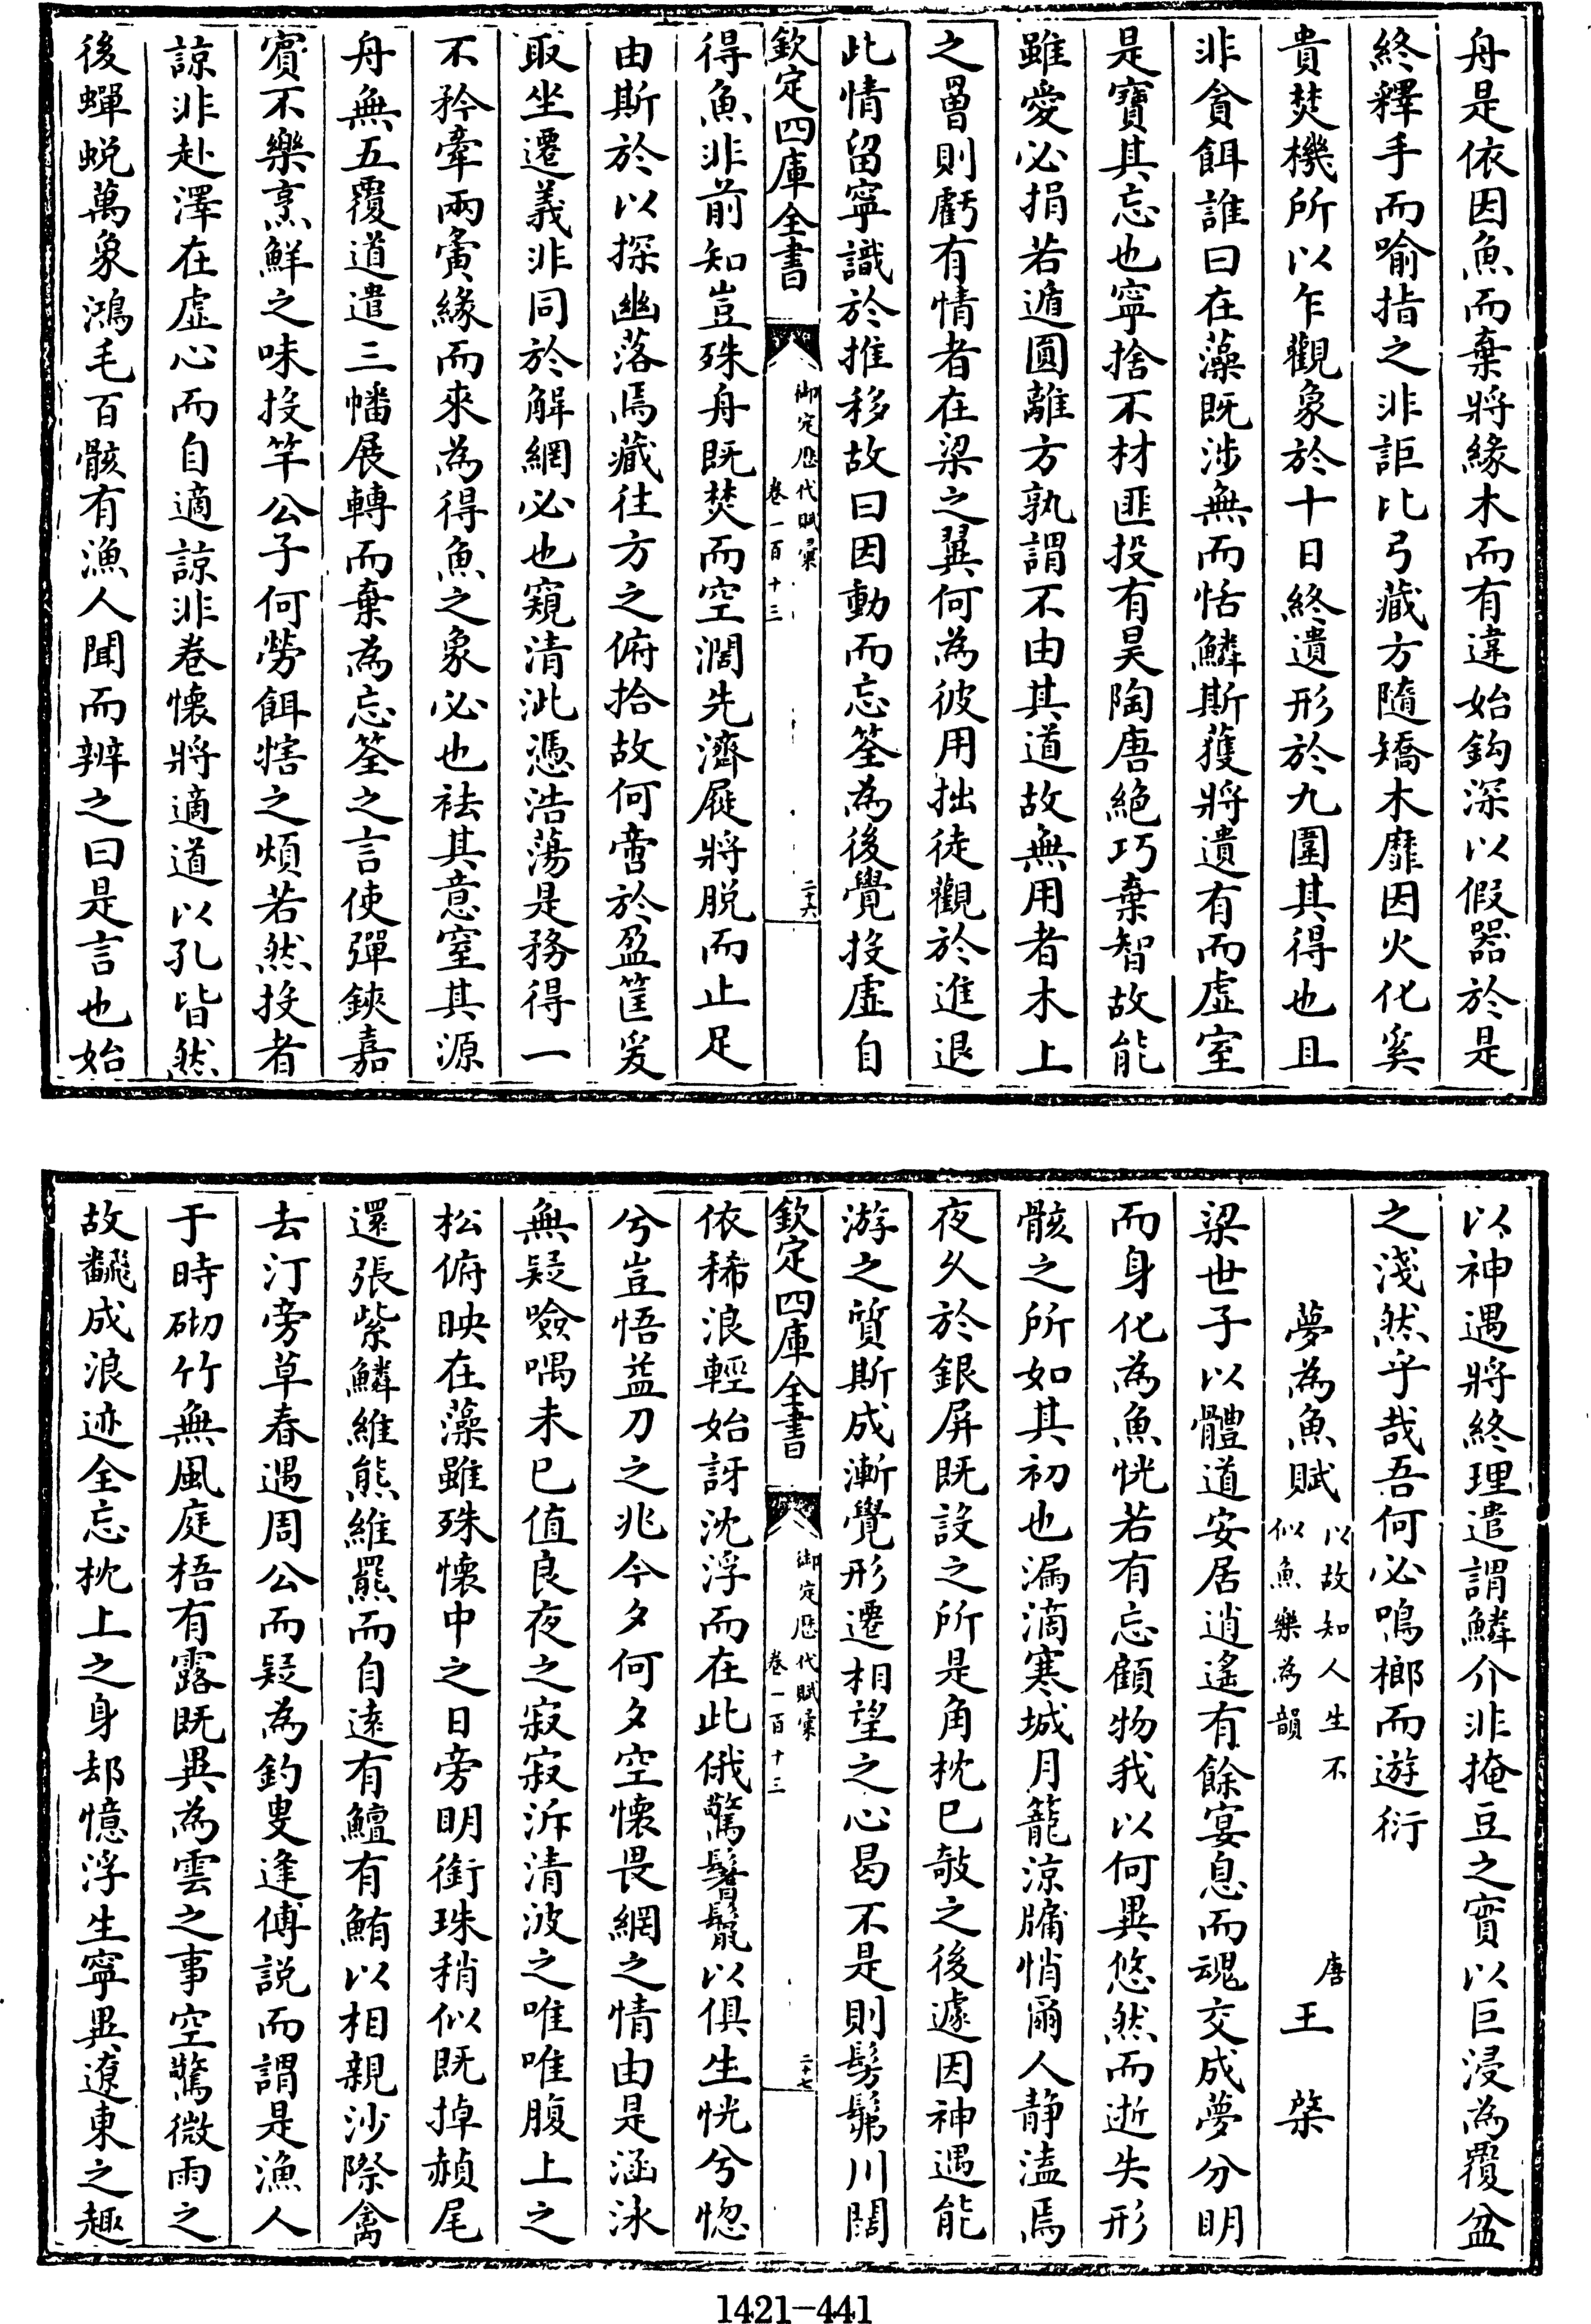 舟是依因魚而棄將緣木而有違始鈎深以假器於是
終釋手而喻指之非詎比弓藏方隨矯木靡因火化奚
貴焚機所以乍觀象於十日終遺形於九圍其得也且
非貪餌誰曰在藻既涉無而恬鱗斯獲將遺有而虛室
是寶其忘也寧捨不材匪投有昊陶唐絕巧棄智故能
雖愛必捐若遁圓離方孰謂不由其道故無用者木上
之罾則虧有情者在梁之翼何為彼用拙徒觀於進退
此情留寧識於推移故曰因動而忘筌為後覺投虛自
欽定四庫全書
御定歷代賦彙
卷一百十三
二十六
得魚非前知豈殊舟既焚而空濶先濟屣將脫而止足
由斯於以探幽落焉藏往方之俯拾故何啻於盈筐爰
取坐遷義非同於解網必也窺清泚憑浩蕩是務得一
不矜牽兩寅緣而來為得魚之象必也祛其意窒其源
舟無五覆道遣三幡展轉而棄為忘筌之言使彈鋏嘉
賓不樂烹鮮之味投竿公子何勞餌犗之煩若然投者
諒非赴澤在虛心而自適諒非卷懷將適道以孔皆然
後蟬蛻萬象鴻毛百骸有漁人聞而辨之曰是言也始
以神遇將終理遣謂鱗介非掩豆之實以巨浸為覆盆
之淺然乎哉吾何必鳴榔而遊衍
夢為魚賦
以故知人生不
似魚樂為韻
唐
王棨
梁世子以體道安居逍遙有餘宴息而魂交成夢分明
而身化為魚恍若有忘顧物我以何異悠然而逝失形
骸之所如其初也漏滴寒城月籠涼牖悄爾人静溘焉
夜久於銀屏既設之所是角枕已攲之後遽因神遇能
游之質斯成漸覺形遷相望之心曷不是則髣髴川闊
欽定四庫全書
御定歷代賦彙
卷一百十三
二十七
依稀浪輕始訝沈浮而在此俄驚鬐鬛以俱生恍兮惚
兮豈悟益刀之兆今夕何夕空懷畏網之情由是涵泳
無疑噞喁未已值良夜之寂寂泝清波之唯唯腹上之
松俯映在藻雖殊懷中之日旁明銜珠稍似既掉頳尾
還張紫鱗維熊維羆而自遠有鱣有鮪以相親沙際禽
去汀旁草春遇周公而疑為釣叟逢傅説而謂是漁人
于時砌竹無風庭梧有露既異為雲之事空驚微雨之
故飜成浪迹全忘枕上之身却憶浮生寧異遼東之趣
1421-441